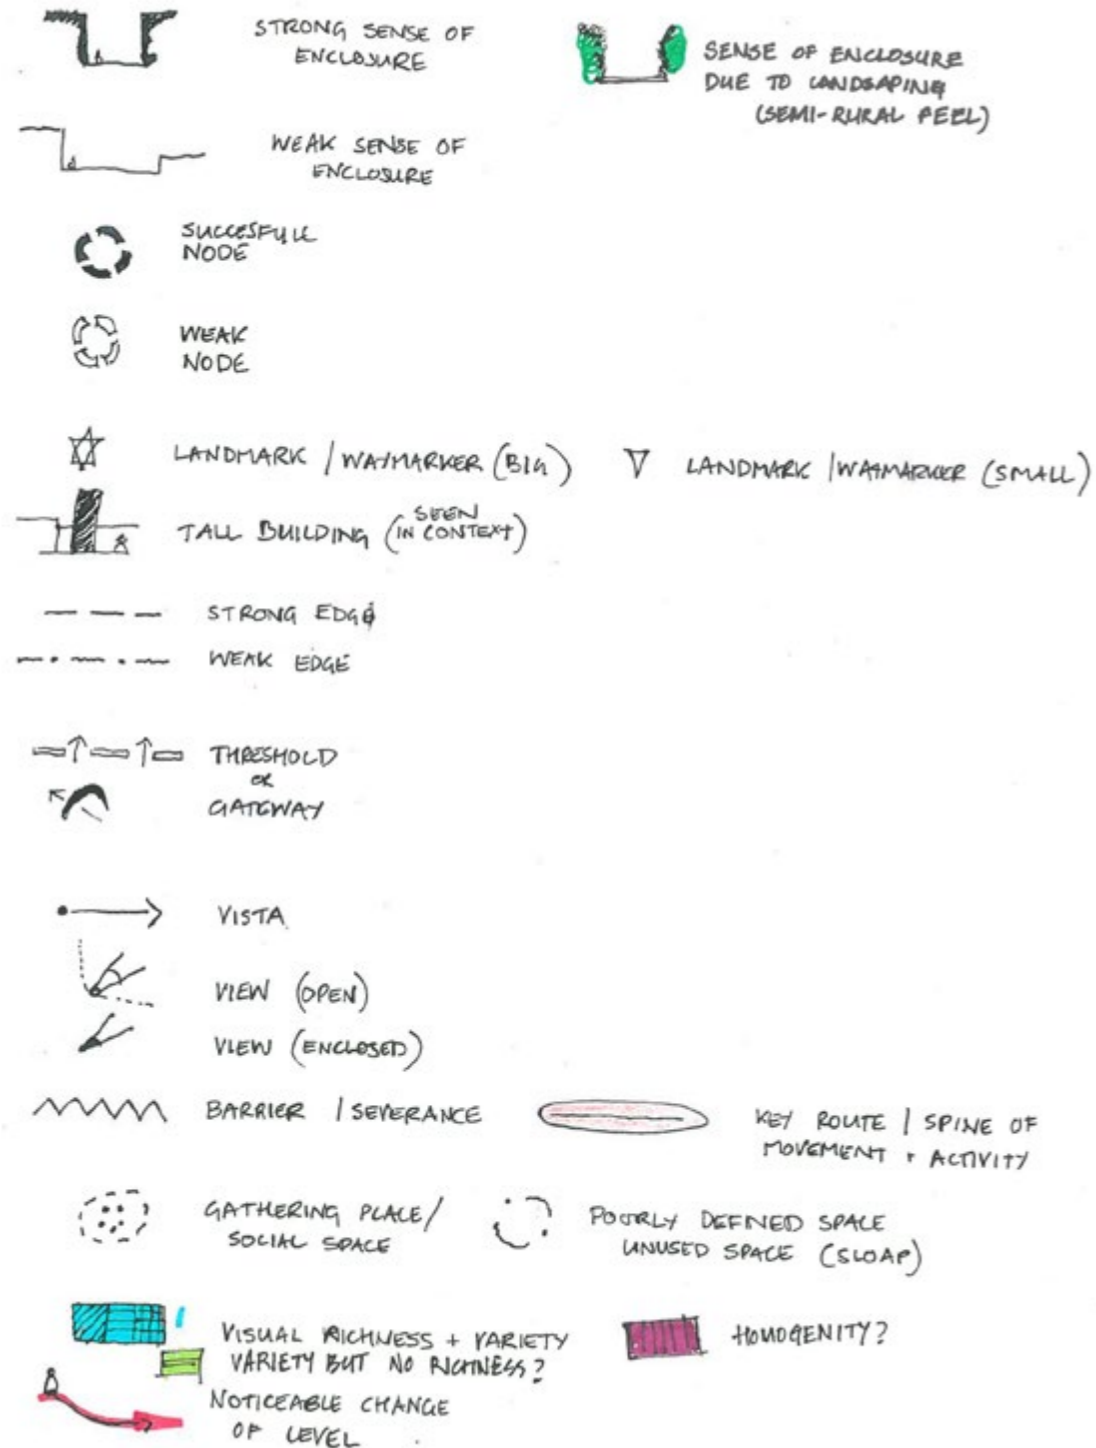 STRONG SENSE OF
ENCLOSURE
SENSE OF ENCLOSURE
DUE TO LANDSAPING
(SEMI-RURAL FEEL)
WEAK SENSE OF
ENCLOSURE
SUCCESFULL
NODE
WEAK
NODE
LANDMARK / WAYMARKER (BIG)
LANDMARK / WAYMARKER (SMALL)
TALL BUILDING (SEEN
IN CONTEXT)
STRONG EDGE
WEAK EDGE
THRESHOLD
OR
GATEWAY
VISTA
VIEW (OPEN)
VIEW (ENCLOSED)
BARRIER / SEVERANCE
KEY ROUTE / SPINE OF
MOVEMENT + ACTIVITY
GATHERING PLACE/
SOCIAL SPACE
POORLY DEFINED SPACE
UNUSED SPACE (SLOAP)
VISUAL RICHNESS + VARIETY
VARIETY BUT NO RICHNESS?
HOMOGENITY?
NOTICEABLE CHANGE
OF LEVEL